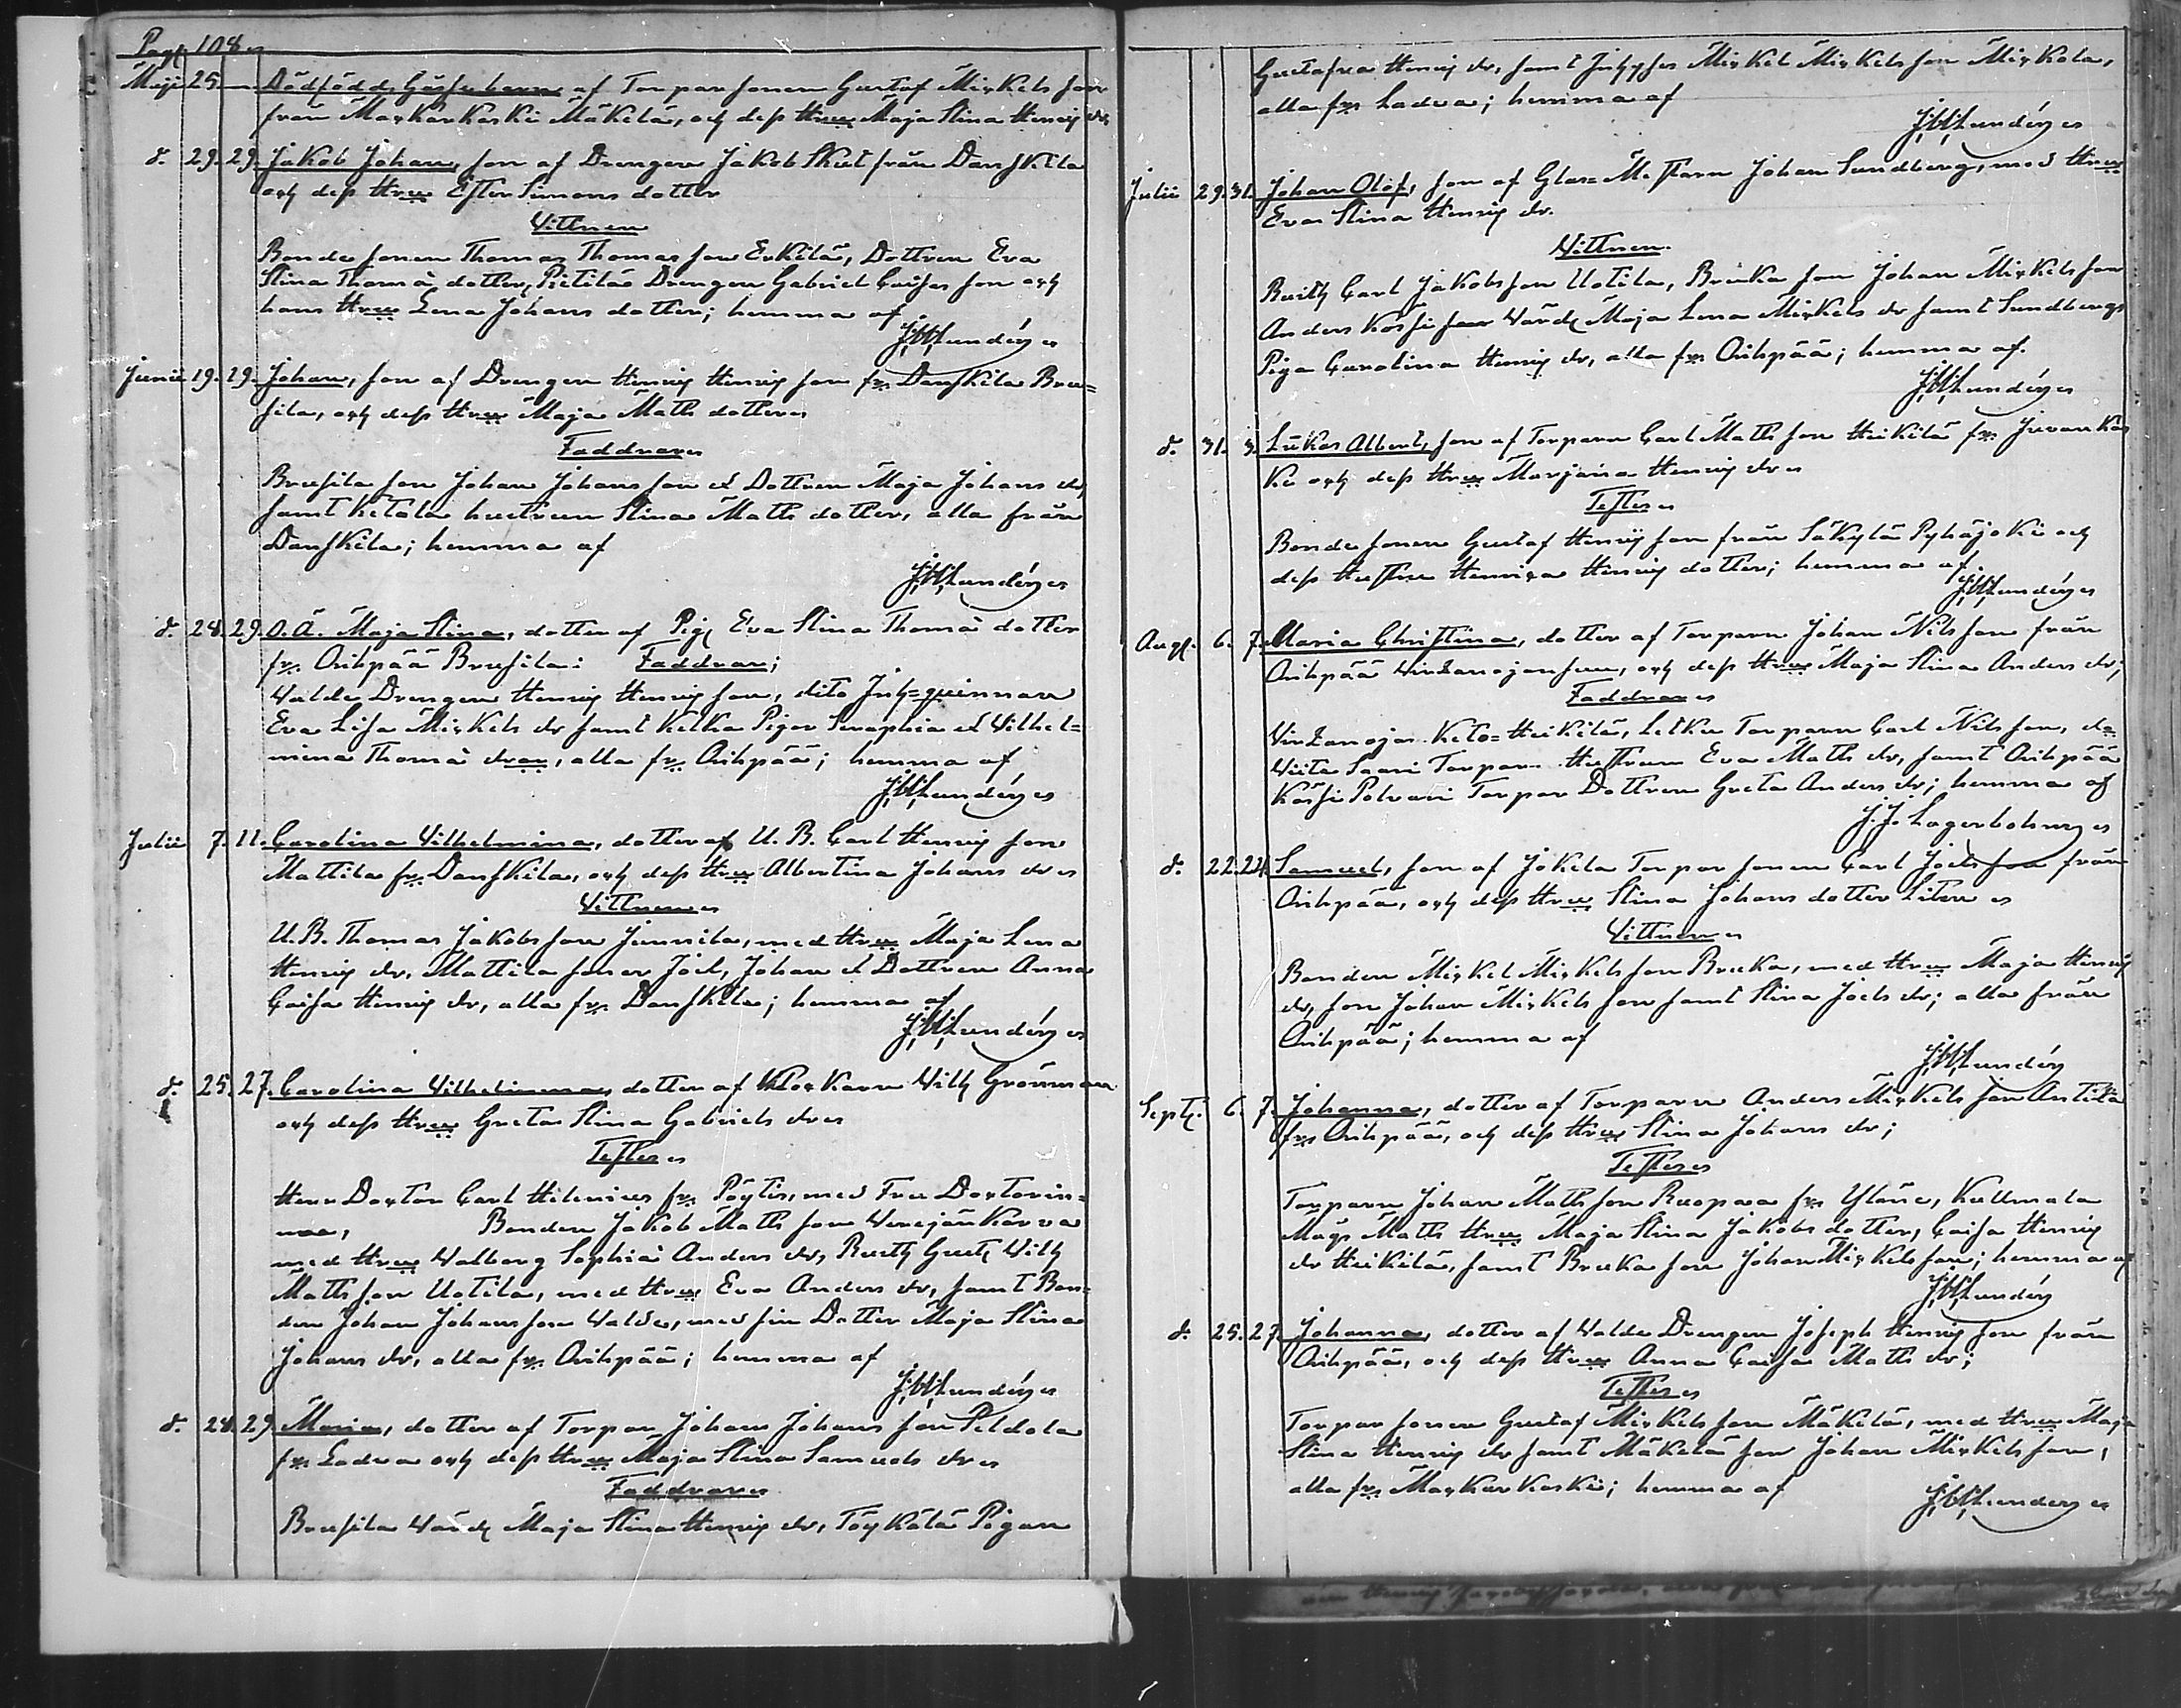 Pag. 108.
Maji 25 — Dödfödde Gåssebarn af Torparsonen Gustaf Mickelsson
från Mackarkoski Mäkelä, och dess Hru Maja Stina Henrics dr
d. 29. 29. Jakob Johan, son af Drengen Jakob Skut från Danskila
och dess Hru Ester Simons dotter
Vittnen
Bonde sonen Thomas Thomasson Erkilä, Dottren Eva
Stina Thomæ dotter, Pietilä Drengen Gabriel Caisas son och
hans Hru Lena Johans dotter; hemma af
Lundén
Junii 19. 29. Johan, son af Drengen Henric Henricsson fr. Danskila Bru-
sila, och dess Hru Maja Maths dotter
Faddrar
Brusila son Johan Johansson & Dottren Maja Johans dr,
samt Ketola hustrun Stina Maths dotter, alla från
Danskila; hemma af
Lundén
d. 28. 29. O.Ä. Maja Stina, dotter af Pig. Eva Stina Thomæ dotter
fr. Orihpää Brusila: Faddrar;
Walde Drengen Henric Henricsson, dito Inh=quinnan
Eva Lisa Mickels dr samt Kelka Pigor Seraphia & Wilhel=
mina Thomæ drar, alla fr. Orihpää; hemma af
Lundén
Julii 7. 11. Carolina Vilhelmina, dotter af U. B. Carl Henricsson
Mattila fr. Danskila, och dess Hru Albertina Johans dr
Vittnen
U. B. Thomas Jakobsson Junnila, med Hru Maja Lena
Henrics dr, Mattila soner Joel, Johan & Dottren Anna
Caisa Henrics dr, alla fr. Danskila; hemma af
Lundén
d. 25. 27. Carolina Vilhelmina, dotter af Klockaren Wilh Grönman
och dess Hru Greta Stina Gabriels dr
Testes
Herr Doctor Carl Hilenius fr. Pöytis, med Fru Doctorin=
nan, Bonden Jakob Mathsson Werejänkorva
med Hru Walborg Sophia Anders dr, Rusth Gust. Wilh
Mathsson Uotila, med Hru Eva Anders dr, samt Bon=
den Johan Johansson Walde, med sin Dotter Maja Stina
Johans dr, alla fr. Orihpää; hemma af
Lundén
d. 28. 29 Maria, dotter af Torpar Johan Johansson Peldola
fr. Ladva och dess Hru Maja Stina Samuels dr
Faddrar
Brusila Maja Stina Henrics dr, Töykälä Pigan
Gustafva Henrics dr, samt Inhyses Mickel Mickelsson Mickola,
alla fr. Ladva; hemma af
Lundén
Julii 29. 31. Johan Olof, son af Glas=Mestaren Johan Sundberg, med Hru
Eva Stina Henrics dr.
Vittnen.
Rusth Carl Jakobsson Uotila, Bruka son Johan Mickelsson
Anders Kossi Maja Lena Mickels dr samt Sundbergs
Piga Carolina Henrics dr, alla fr. Orihpää; hemma af.
Lundén
d. 31. 3. Lukas Albert, son af Torparn Carl Mathsson Heikilä fr. Juvankos
ki och dess Hru Marjana Henrics dr
Testes
Bonde sonen Gustaf Henricsson från Säkylä Pyhäjoki och
dess Hustru Henrica Henrics dotter; hemma af
Lundén
Aug. 6. 7. Maria Christina, dotter af Torparn Johan Nilsson från
Orihpää Virtanojansuu, och dess Hru Maja Stina Anders dr;
Faddrar
Virtanojan Keto=Heikilä, Torparn Carl Nilsson, do
Wiita Saari Torpare Hustrun Eva Maths dr, samt Orihpää
Kossi Polvari Torpar Dottren Greta Anders dr; hemma af
J. J. Lagerbohm
d. 22. 24. Samuel, son af Jokela Torpar sonen Carl Joelsson från
Orihpää, och dess Hru Stina Johans dotter Liten
Vittnen
Bonden Mickel Mickelsson Bruka, med Hru Maja Henrics
dr, son Johan Mickelsson samt Stina Joels dr; alla från
Orihpää; hemma af
Lundén
Sept. 6. 7. Johanna, dotter af Torparn Anders Mickelsson Antila
fr. Orihpää, och dess Hru Stina Johans dr;
Testes
Torparn Johan Mathsson Ruopaa fr. Yläne, Kullmala
Mågs Maths Hru Maja Stina Jakobs dotter, Caisa Henrics
dr Heikilä, samt Bruka son Johan Mickelsson; hemma af
Lundén
d. 25. 27. Johanna, dotter af Walde Drengen Joseph Henricsson från
Orihpää, och dess Hru Anna Caisa Maths dr;
Testes
Torpar sonen Gustaf Mickelsson Mäkelä, med Hru Maja
Stina Henrics dr samt Mäkelä son Johan Mickelsson,
alla fr. Mackarkoski; hemma af
Lundén